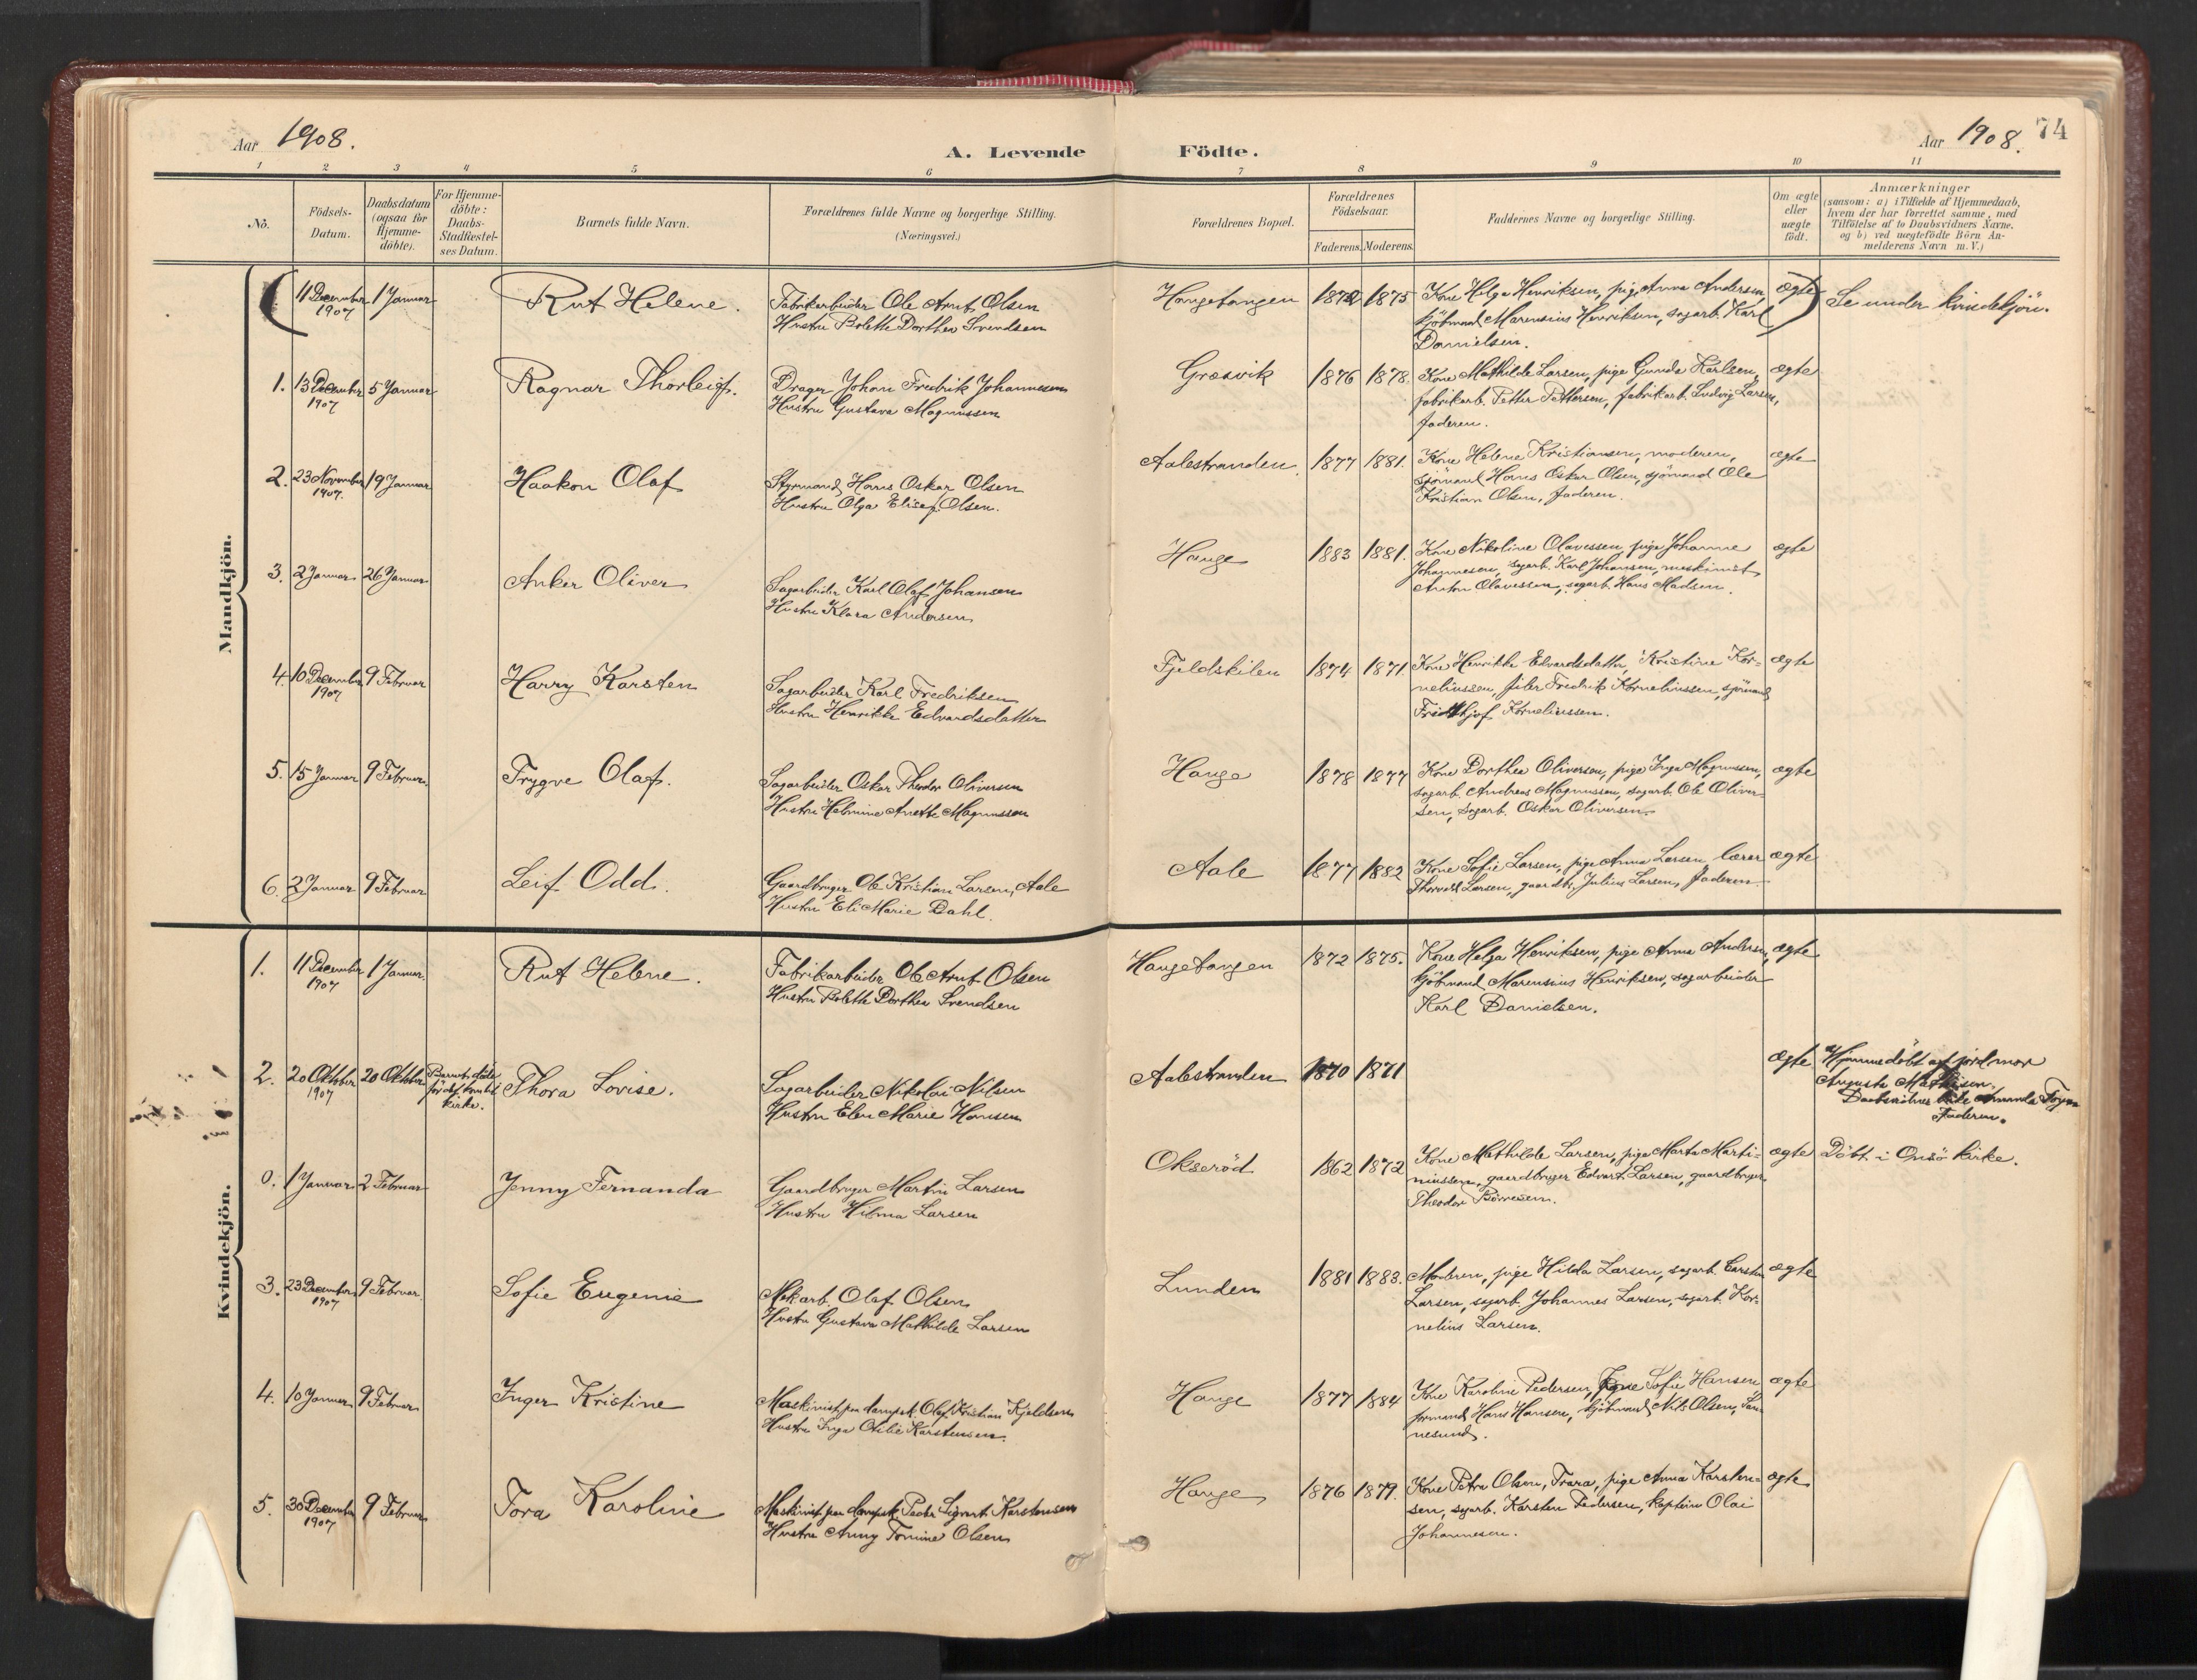 Aar 1908.
A. Levende Födte.
Aar 1908.
74
1 2 3 4 5 6 7 8 9 10 11
No.
Födsels-Datum.
Daabsdatum (ogsaa for Hjemme-döbte).
For Hjemme-döbte: Daabs-Stadfæstel-ses Datum.
Barnets fulde Navn.
Forældrenes fulde Navne og borgerlige Stilling.
(Næringsvei.)
Forældrenes Bopæl.
Forældrenes Födselsaar.
Faderens. Moderens.
Faddernes Navne og borgerlige Stilling.
Om ægte eller uægte födt.
Anmærkninger
(saasom: a) i Tilfælde af Hjemmedaab,
hvem der har forrettet samme, med
Tilföielse af to Daabsvidners Navne.
og b) ved uægtefödte Börn An-
melderens Navn m. V.)
Mandkjön.
11 December 1907 1 Januar Rut Helene. Fabrikarbeider Ole Arnt Olsen
Hustru Bolette Dorthea Svendsen
Haugetangen 1872 1875 Kone Helga Henriksen, pige Anna Andersen ægte Se under kvindekjön.
kjöbmand Marensius Henriksen, sagarb. Karl
Danielsen.
1. 13 December 1907 5 Januar Ragnar Thorleif. Drager Johan Fredrik Johannesen
Hustru Gustava Magnussen
Græsvik 1876 1878. Kone Mathilde Larsen, pige Gunda Karlsen, ægte
fabrikarb. Petter Pettersen, fabrikarb. Ludvig Larsen,
faderen.
2. 23 November 1907. 19 Januar Haakon Olaf Styrmand Hans Oskar Olsen
Hustru Olga Elise f. Olsen.
Aalestranden 1877 1881. Kone Helene Kristiansen, moderen, ægte
sjömand Hans Oskar Olsen, sjömand Ole
Kristian Olsen, faderen.
3. 2 Januar 26 Januar Anker Oliver Sagarbeider Karl Olaf Johansen
Hustru Klara Andersen
Hauge 1883 1881. Kone Nikoline Olavessen pige Johanne ægte
Johannesen, sagarb. Karl Johansen, maskinist
Anton Olavessen, sagarb. Hans Madsen.
4. 10 December 1907 9 Februar Harry Karsten Sagarbeider Karl Fredriksen
Hustru Henrikke Edvardsdatter
Fjeldskilen 1874 1871. Kone Henrikke Edvardsdatter, Kristine Kor- ægte
neliussen, filer Fredrik Korneliussen, sjömand
Fridthjof Korneliussen.
5. 15 Januar 9 Februar. Trygve Olaf. Sagarbeider Oskar Theodor Oliversen
Hustru Helmine Anette Magnussen
Hauge 1878 1877 Kone Dorthea Oliversen, pige Inga Magnussen, ægte
sagarb. Andreas Magnussen, sagarb. Ole Oliver-
sen, sagarb. Oskar Oliversen.
6. 2 Januar 9 Februar Leif Odd. Gaardbruger Ole Kristian Larsen, Aale
Hustru Eli Marie Dahl.
Aale 1877 1882 Kone Sofie Larsen, pige Anna Larsen lærer ægte
Thorvald Larsen, gaardbr. Julius Larsen, faderen.
Kvindekjön.
1. 11 December 1907 1 Januar. Rut Helene. Fabrikarbeider Ole Arnt Olsen
Hustru Bolette Dorthea Svendsen
Haugetangen 1872 1875. Kone Helga Henriksen, pige Anna Andersen, ægte
kjöbmand Marensius Henriksen, sagarbeider
Karl Danielsen.
2. 20 Oktober 1907 20 Oktober Barnet döde för det kom til kirke. Thora Lovise. Sagarbeider Nikolai Nilsen
Hustru Elen Marie Hansen
Aalestranden 1870 1871 ægte Hjemmedöbt af jordmor
Augusta Mathisen.
Daabsvidner Amanda
Faderen.
0. 1 Januar 2 Februar Jenny Fernanda Gaardbruger Martin Larsen
Hustru Hilma Larsen
Okseröd 1862 1872 Kone Mathilde Larsen, pige Marta Marti- ægte Döbt i Onsö kirke.
niussen, gaardbruger Edvart Larsen, gaardbruger
Theodor Börresen.
3. 23 December 1907 9 Februar. Sofie Eugenie Mek.arb. Olaf Olsen
Hustru Gustava Mathilde Larsen
Lunden 1881 1883. Moderen, pige Hilda Larsen, sagarb. Carsten ægte
Larsen, sagarb. Johannes Larsen, sagarb. Kor-
nelius Larsen.
4. 10 Januar 9 Februar Inger Kristine Maskinist paa dampsk. Olaf Kristian Kjeldsen
Hustru Inga Otilie Karstensen.
Hauge 1877 1884 Kone Karoline Pedersen, Sofie Hansen ægte
formand Hans Hansen, kjöbmand Nils Olsen, San-
nesund.
5. 30 December 1907 9 Februar Tora Karoline Maskinist paa dampsk. Peder Sigvart Karstensen
Hustru Anny Tomine Olsen
Hauge 1876 1879. Kone Petra Olsen, Trara, pige Anna Karsten- ægte
sen, sagarb. Karsten Pedersen, kaptein Olai
Johannesen.